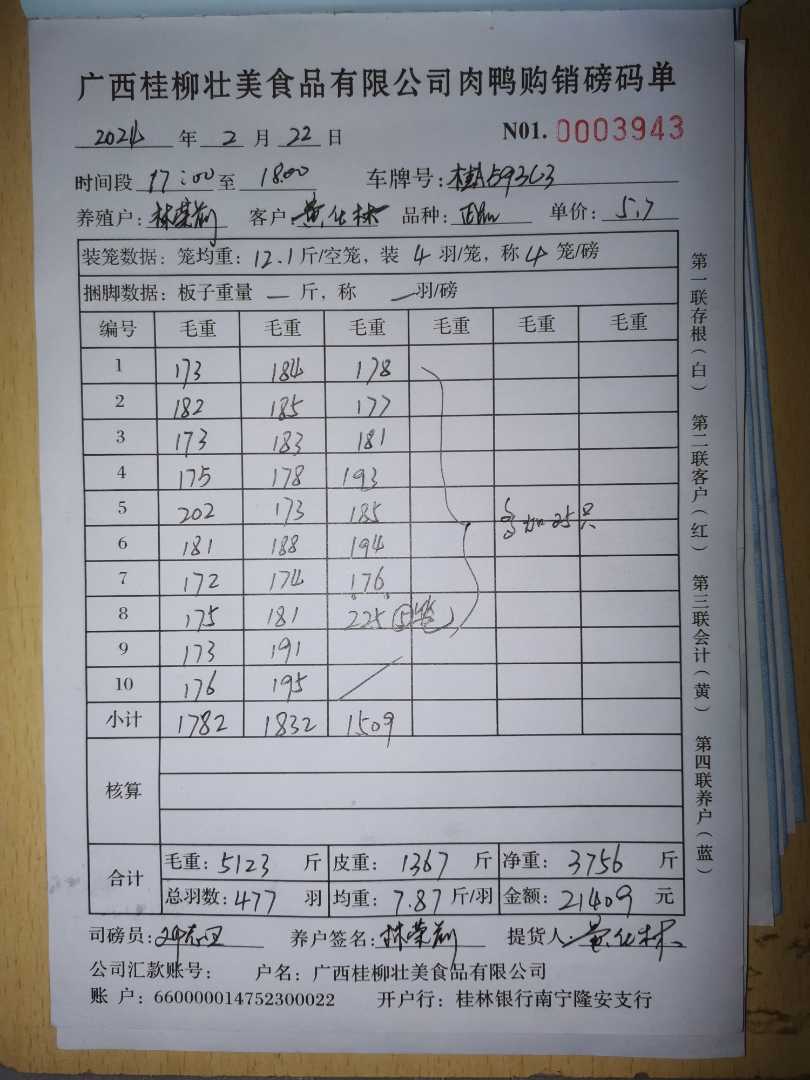 广西桂柳壮美食品有限公司肉鸭购销磅码单
2024 年 2 月 22 日 N01. 0003943
时间段 17:00 至 18:00 车牌号: 桂A593C3
养殖户: 林荣利 客户: 黄化林 品种: 单价: 5.7
装笼数据: 笼均重: 12.1 斤/空笼, 装 4 羽/笼, 称 4 笼/磅
捆脚数据: 板子重量 — 斤, 称 — 羽/磅
编号 毛重 毛重 毛重 毛重 毛重 毛重
1 173 184 178
2 182 185 177
3 173 183 181
4 175 178 193
5 202 173 185 多加25只
6 181 188 194
7 172 174 176
8 175 181 225 (5笼)
9 173 191
10 176 195
小计 1782 1832 1509
核算
合计 毛重: 5123 斤 皮重: 1367 斤 净重: 3756 斤
总羽数: 477 羽 均重: 7.87 斤/羽 金额: 21409 元
司磅员: 养户签名: 林荣利 提货人: 黄化林
公司汇款账号: 户名: 广西桂柳壮美食品有限公司
账 户: 660000014752300022 开户行: 桂林银行南宁隆安支行
第一联存根(白) 第二联客户(红) 第三联会计(黄) 第四联养户(蓝)